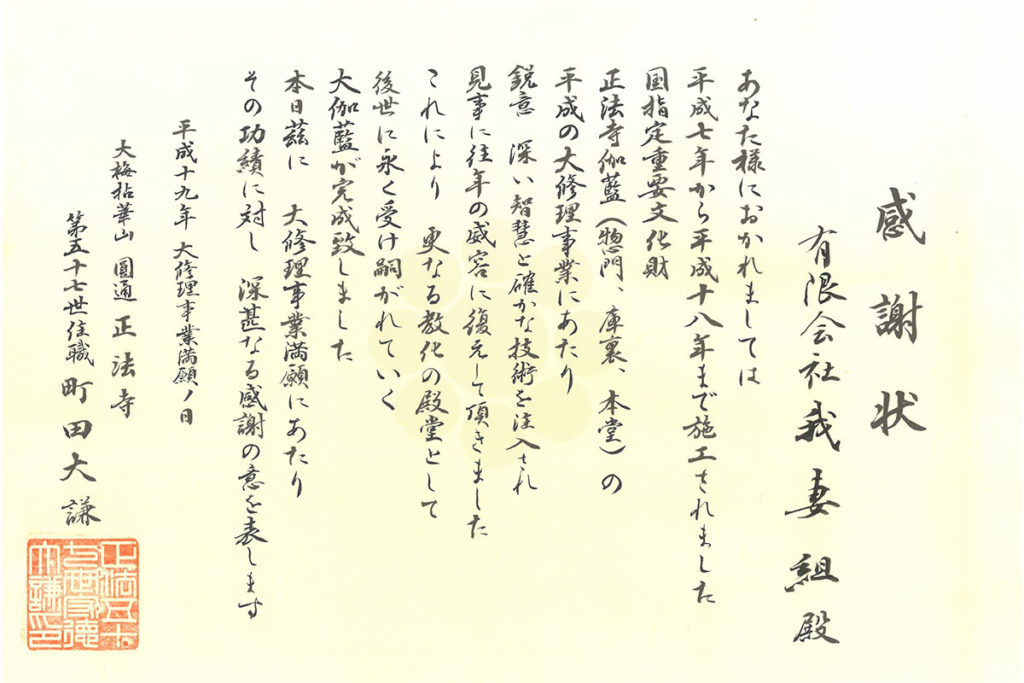 感謝状
有限会社我妻組殿
あなた様におかれましては
平成七年から平成十八年まで施工されました
国指定重要文化財
正法寺伽藍(惣門、庫裏、本堂)の
平成の大修理事業にあたり
鋭意 深い智慧と確かな技術を注入され
見事に往年の威容に復元して頂きました
これにより 更なる教化の殿堂として
後世に永く受け嗣がれていく
大伽藍が完成致しました
本日茲に 大修理事業満願にあたり
その功績に対し 深甚なる感謝の意を表します
平成十九年 大修理事業満願ノ日
大梅拈華山 圓通 正法寺
第五十七世住職 町田大謙